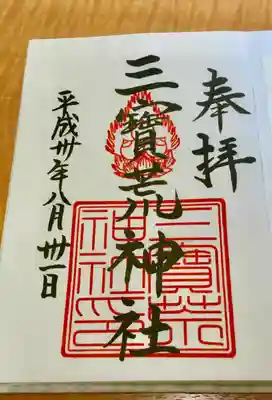 奉拝
三寶荒神社
三寶荒神社印
平成卅年八月卅一日